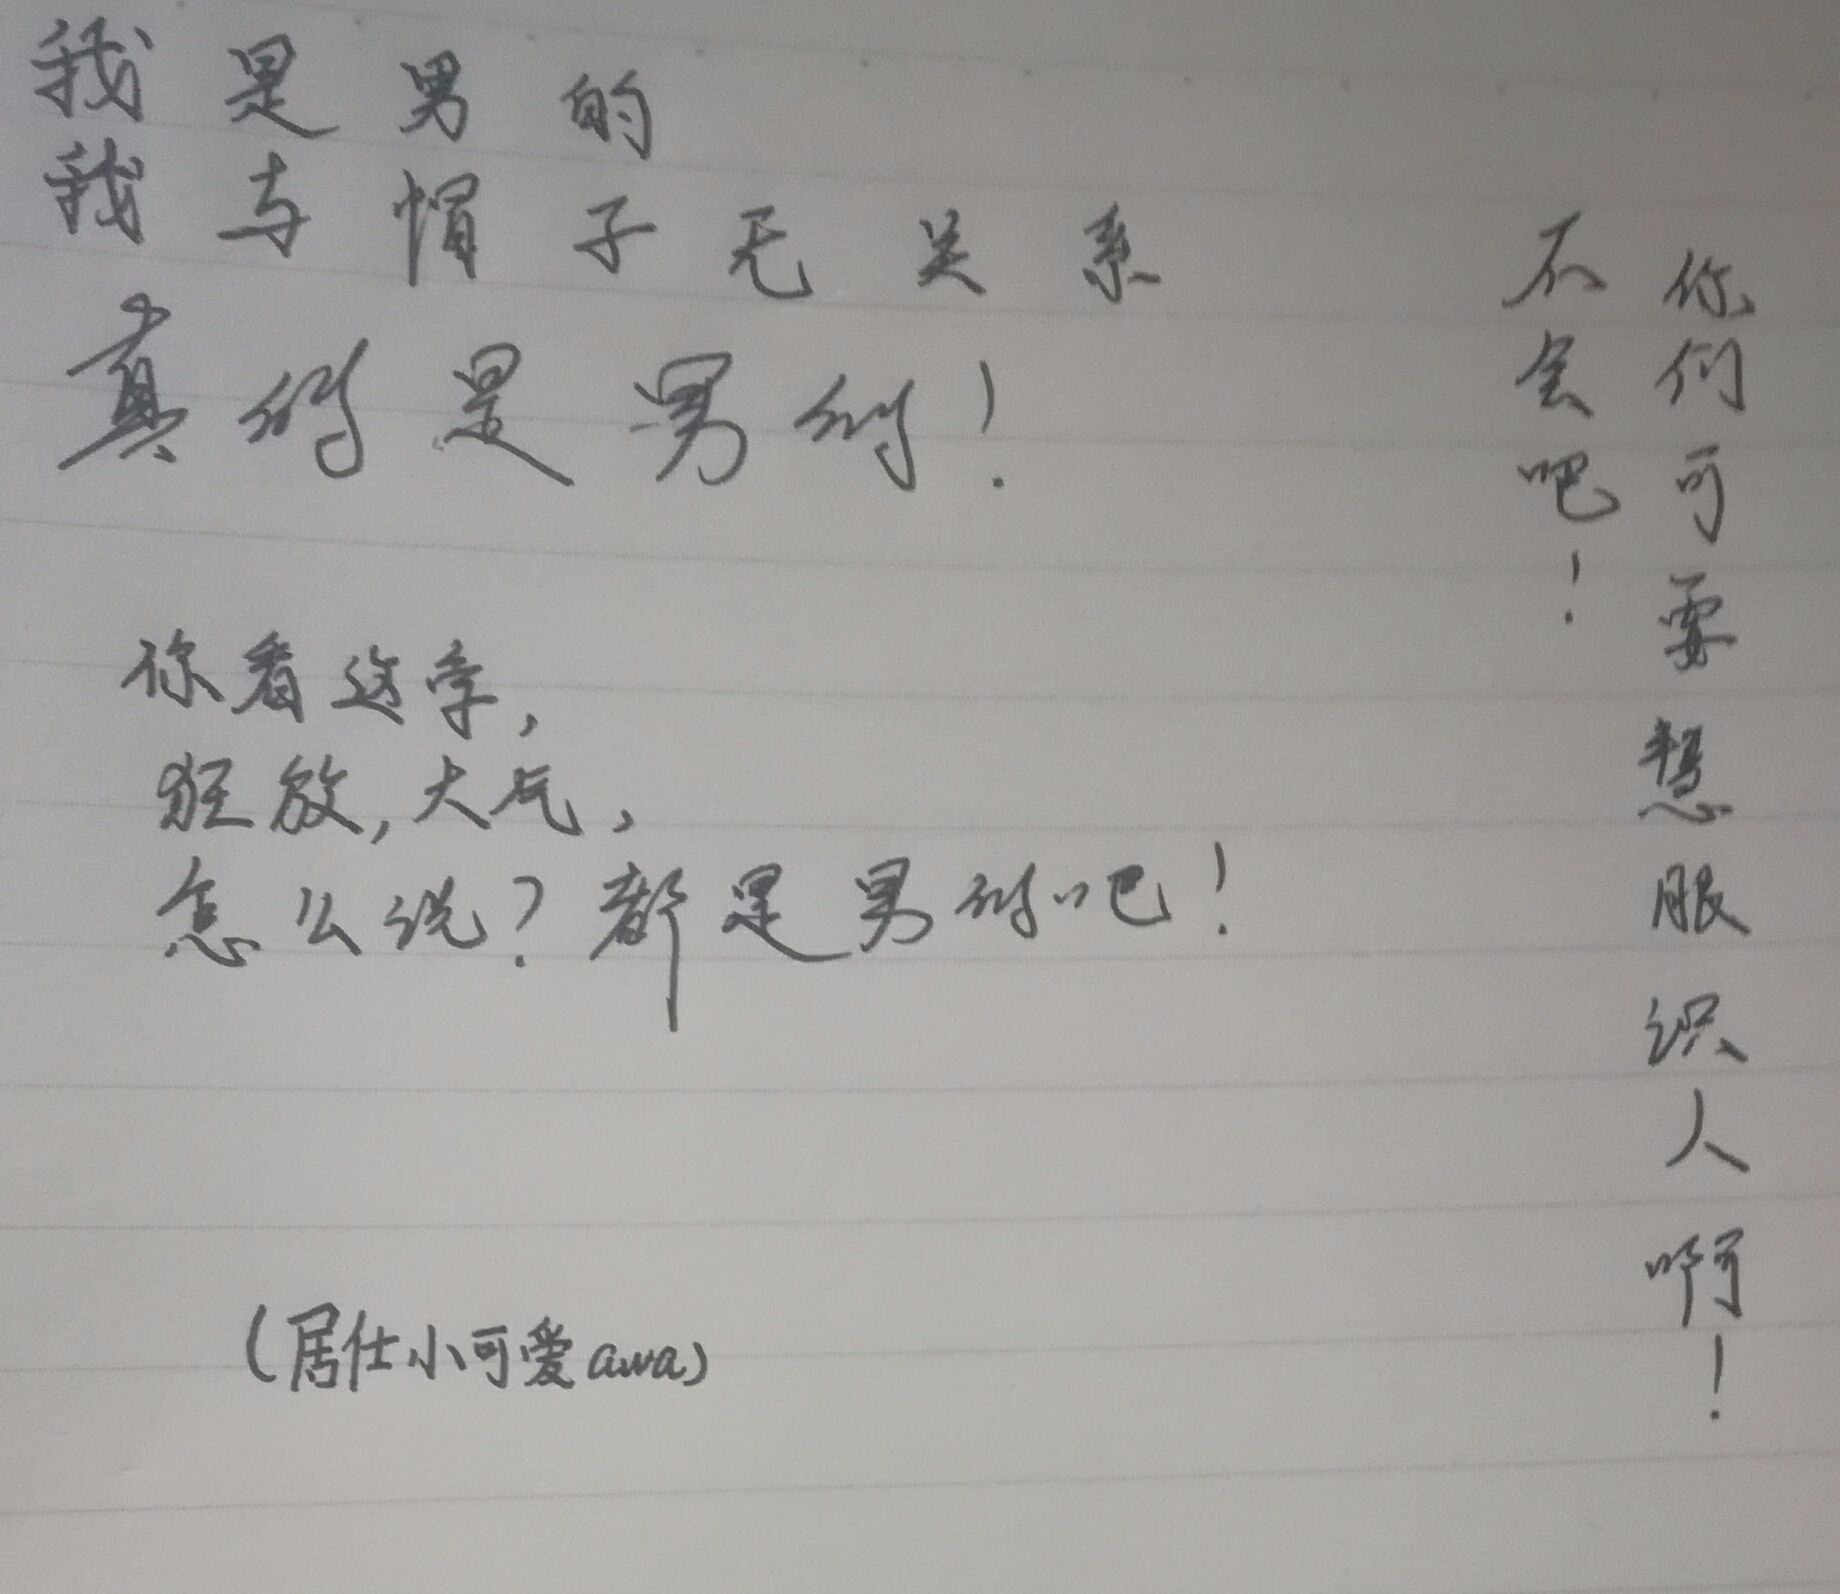 我是男的
我与帽子无关系
真的是男的！
你看这字，
狂放，大气，
怎么说？都是男的吧！
（居仕小可爱awa）
你们可要想服识人啊！
不会吧！